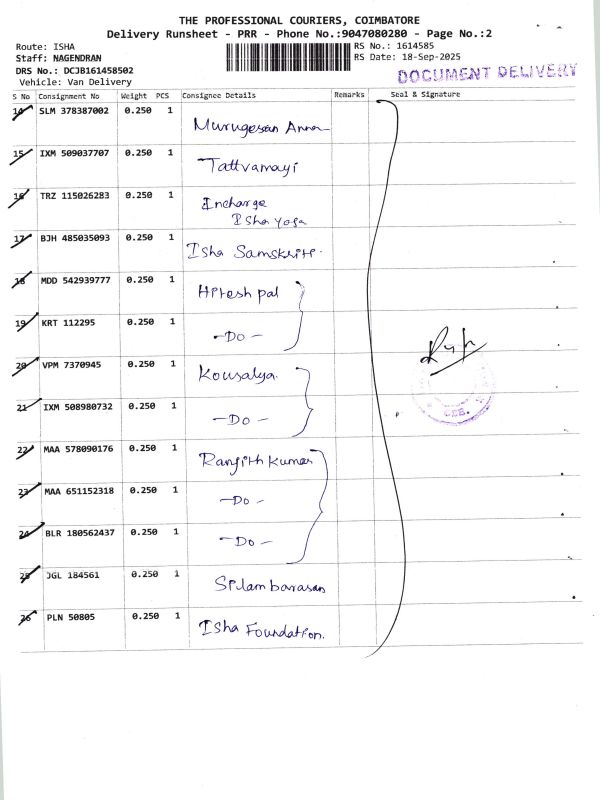 THE PROFESSIONAL COURIERS, COIMBATORE
Delivery Runsheet - PRR - Phone No.:9047080280 - Page No.:2
Route: ISHA
Staff: NAGENDRAN
DRS No.: DCJB161458502
Vehicle: Van Delivery
RS No.: 1614585
RS Date: 18-Sep-2025
DOCUMENT DELIVERY
S No Consignment No Weight PCS Consignee Details Remarks Seal & Signature
14 SLM 378387002 0.250 1 Murugesan Anna
15 IXM 509037707 0.250 1 Tattvamayi
16 TRZ 115026283 0.250 1 Incharge
Isha Yoga
17 BJH 485035093 0.250 1 Isha Samskriti.
18 MDD 542939777 0.250 1 Hitesh pal
19 KRT 112295 0.250 1 -Do-
20 VPM 7370945 0.250 1 Kousalya.
21 IXM 508980732 0.250 1 -Do-
22 MAA 578090176 0.250 1 Ranjith Kumar
23 MAA 651152318 0.250 1 -Do-
24 BLR 180562437 0.250 1 -Do-
25 JGL 184561 0.250 1 Silambarasan
26 PLN 50805 0.250 1 Isha Foundation.